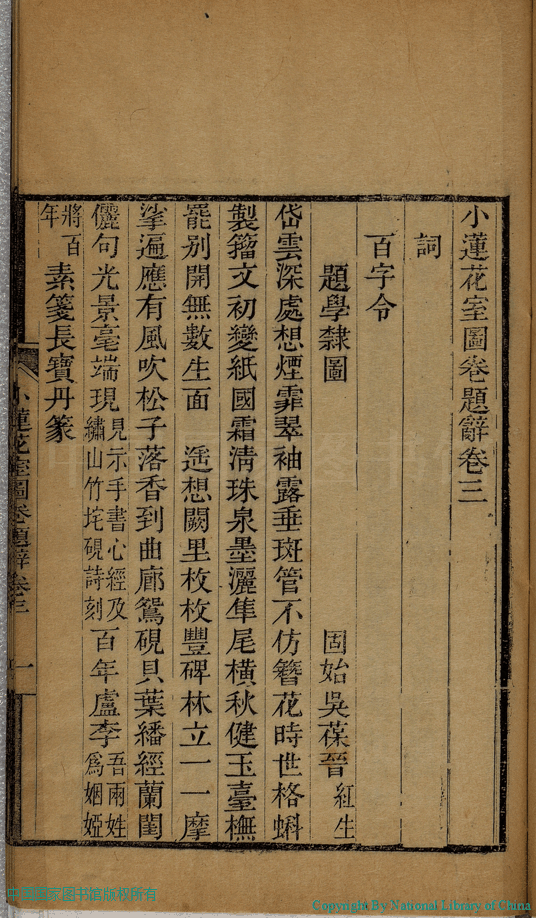 小蓮花室圖卷題辭卷三
詞
百字令
題學隸圖 固始吳葆晉紅生
岱雲深處想煙霏翠袖露垂斑管不仿簪花時世格蝌
製籀文初變紙國霜清珠泉墨灑隼尾橫秋健玉臺橅
罷別開無數生面 遥想闕里枚枚豐碑林立一一摩
挲遍應有風吹松子落香到曲廊鴛硯貝葉繙經蘭閨
儷句光景毫端現見示手書心經及繡山竹垞硯詩刻百年盧李吾兩姓爲姻婭
將百年素箋長寶丹篆
小蓮花室圖卷題辭卷三 一
中国国家图书馆版权所有
Copyright By National Library of China